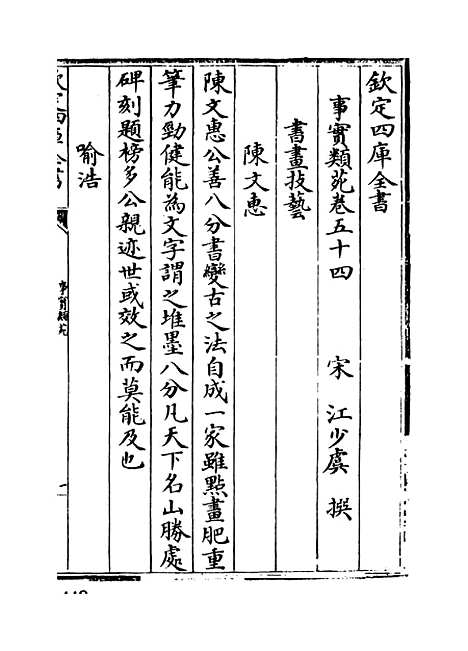 欽定四庫全書
事實類苑卷五十四
宋 江少虞 撰
書畫技藝
陳文惠
陳文惠公善八分書變古之法自成一家雖點畫肥重
筆力勁健能為文字謂之堆墨八分凡天下名山勝處
碑刻題榜多公親迹世或效之而莫能及也
喻浩
事實類苑
一